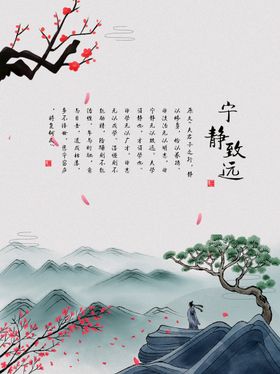 宁静致远
原文:夫君子之行,静
以修身,俭以养德,
非淡泊无以明志,非
宁静无以致远。夫学
须静也,才须学也,
非学无以广才,非志
无以成学。淫慢则不
能励精,险躁则不能
治性。年与时驰,意
与日去,遂成枯落,
多不接世,悲守穷庐
,将复何及。